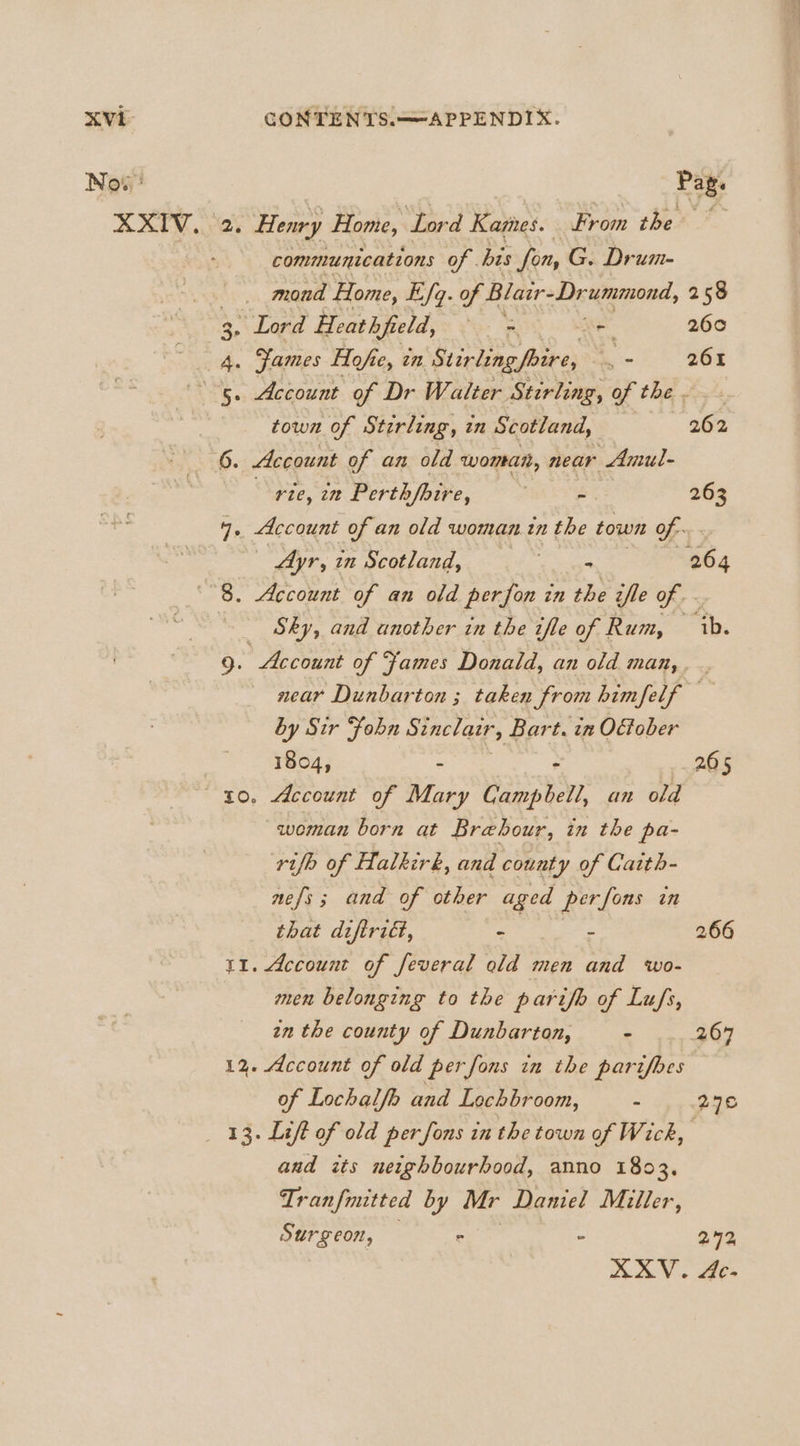 xvi CONTENTS.——APPENDIX.
No. Pag.
XXIV. 2. Henry Home, Lord Kames. From the
communications of his ſon, G. Drum-
mond Home, Eſq. of Blair-Drummond, 258
3. Lord Heathfield, - - 260
4. James Hoſie, in Stirlingſhire, - 261
5. Account of Dr Walter Stirling, of the
town of Stirling, in Scotland, 262
6. Account of an old woman, near Amul-
rie, in Perthſhire, - 263
7. Account of an old woman in the town of
Ayr, in Scotland, - 264
8. Account of an old perſon in the iſle of
Sky, and another in the iſle of Rum, ib.
9. Account of James Donald, an old man,
near Dunbarton; taken from himſelf
by Sir John Sinclair, Bart. in October
1804, - - 265
10. Account of Mary Campbell, an old
woman born at Bræhour, in the pa-
riſh of Halkirk, and county of Caith-
neſs; and of other aged perſons in
that diſtrict, - - 266
11. Account of ſeveral old men and wo-
men belonging to the pariſh of Luſs,
in the county of Dunbarton, - 267
12. Account of old perſons in the pariſhes
of Lochalſh and Lochbroom, - 270
13. Liſt of old perſons in the town of Wick,
and its neighbourhood, anno 1803.
Tranſmitted by Mr Daniel Miller,
Surgeon, - - 272
XXV. Ac-